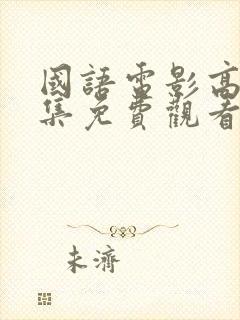 國語電影高
集免費觀看
未濟